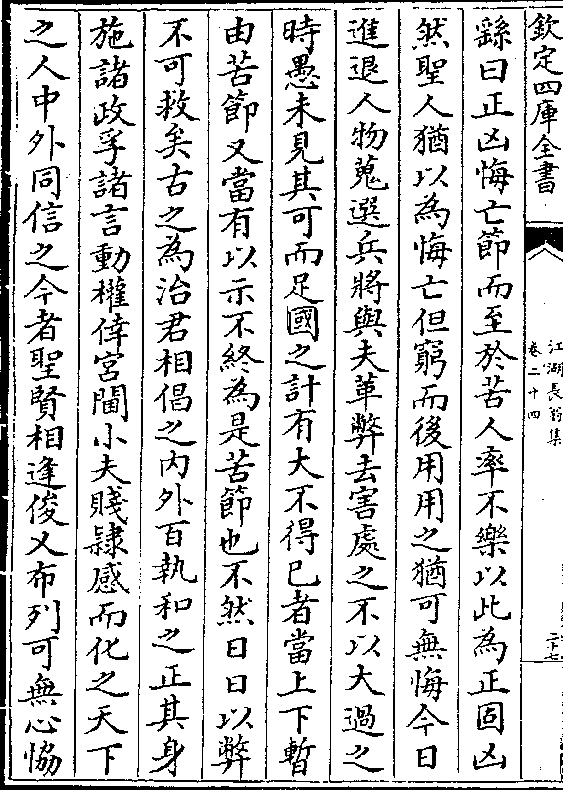 欽定四庫全書
江湖長翁集
卷二十四
二十七
繇曰正凶悔亡節而至於苦人率不樂以此為正固凶
然聖人猶以為悔亡但窮而後用用之猶可無悔今日
進退人物蒐選兵將與夫革弊去害處之不以大過之
時愚未見其可而足國之計有大不得已者當上下暫
由苦節又當有以示不終為是苦節也不然日日以弊
不可救矣古之為治君相倡之内外百執和之正其身
施諸政孚諸言動權倖宮閫小夫賤隸感而化之天下
之人中外同信之今者聖賢相逢俊乂布列可無心恊